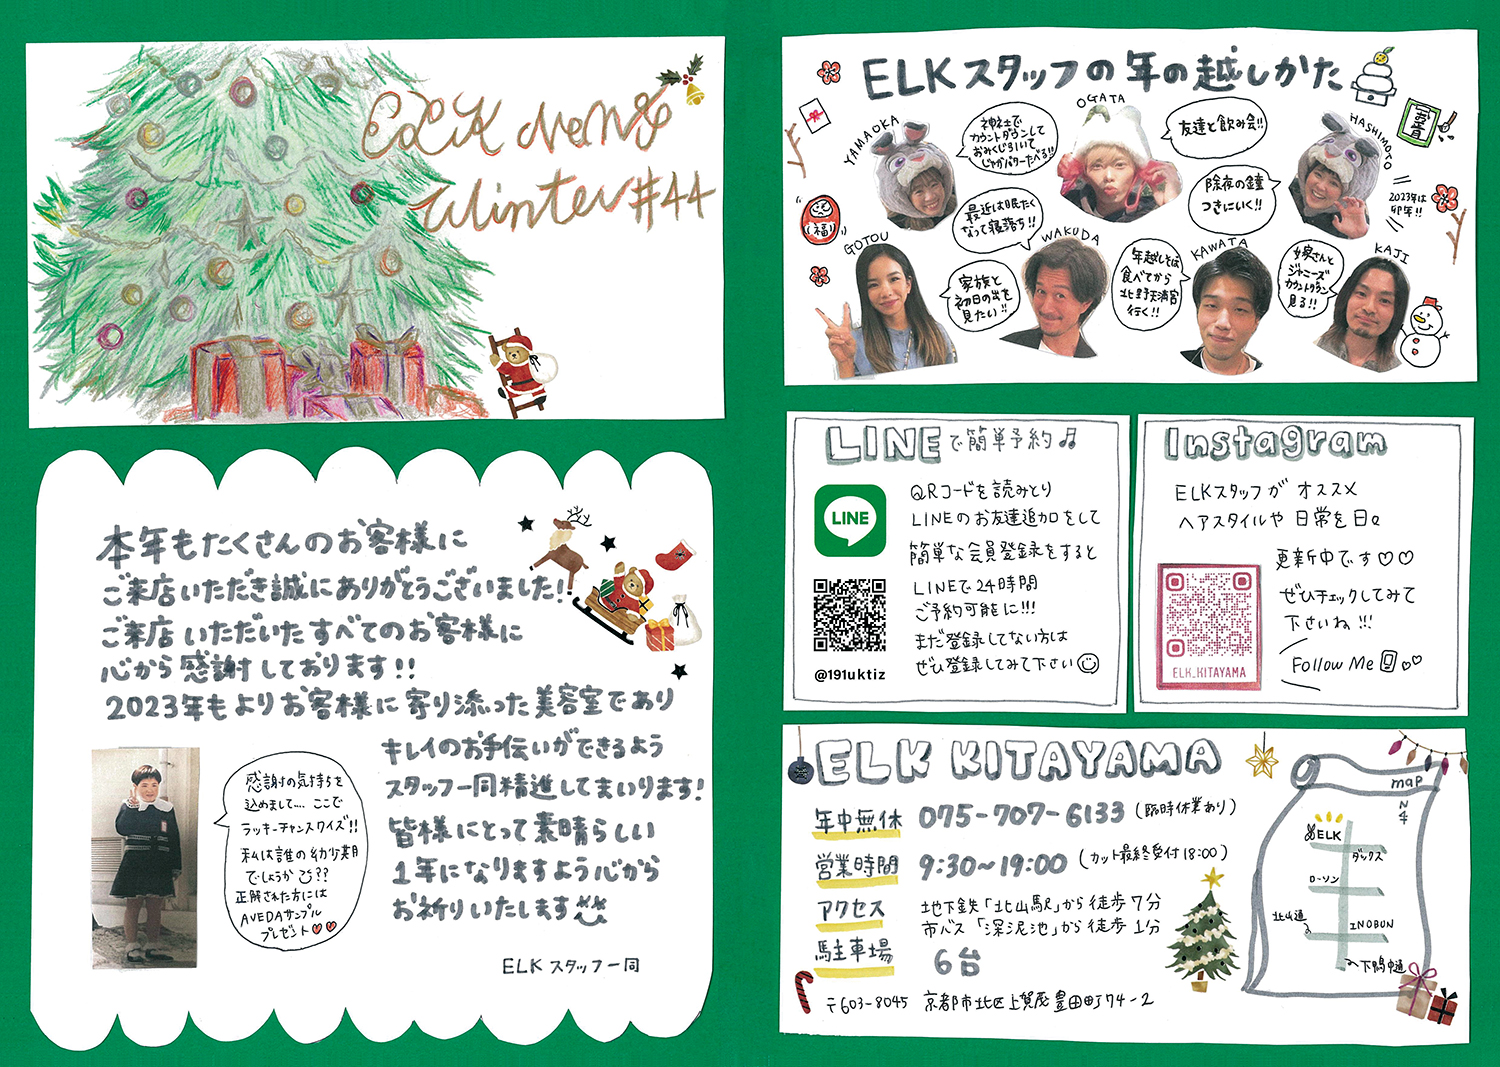 ELK News
Winter #44
本年もたくさんのお客様に
ご来店いただき誠にありがとうございました!
ご来店いただいたすべてのお客様に
心から感謝しております!!
2023年もよりお客様に寄り添った美容室であり
キレイのお手伝いができるよう
スタッフ一同精進してまいります!
皆様にとって素晴らしい
1年になりますよう心から
お祈りいたします
ELK スタッフ一同
感謝の気持ちを
込めまして.... ここで
ラッキーチャンスクイズ!!
私は誰の幼少期
でしょうか??
正解された方には
AVEDAサンプル
プレゼント
ELKスタッフの年の越しかた
YAMAOKA
神社で
カウントダウンして
おみくじ引いて
じゃがバターたべる!!
OGATA
友達と飲み会!!
除夜の鐘
つきにいく!!
HASHIMOTO
2023年は
卯年!!
お年玉
福
GOTOU
最近は眠たく
なって寝落ち!!
家族と
初日の出を
見たい!!
WAKUDA
年越しそば
食べてから
北野天満宮
行く!!
KAWATA
嫁さんと
ジャニーズ
カウントダウン
見る!!
KAJI
LINEで簡単予約♫
LINE
QRコードを読みとり
LINEのお友達追加をして
簡単な会員登録をすると
LINEで24時間
ご予約可能に!!!
まだ登録してない方は
ぜひ登録してみて下さい
@191uktiz
Instagram
ELKスタッフが オススメ
ヘアスタイルや 日常を日々
更新中です♡♡
ぜひチェックしてみて
下さいね!!!
Follow Me
ELK_KITAYAMA
ELK KITAYAMA
年中無休 075-707-6133 (臨時休業あり)
営業時間 9:30~19:00 (カット最終受付18:00)
アクセス 地下鉄「北山駅」から徒歩7分
市バス「深泥池」から徒歩1分
駐車場 6台
〒603-8045 京都市北区上賀茂豊田町74-2
map
N
ELK
ダックス
ローソン
北山通
INOBUN
下鴨中通